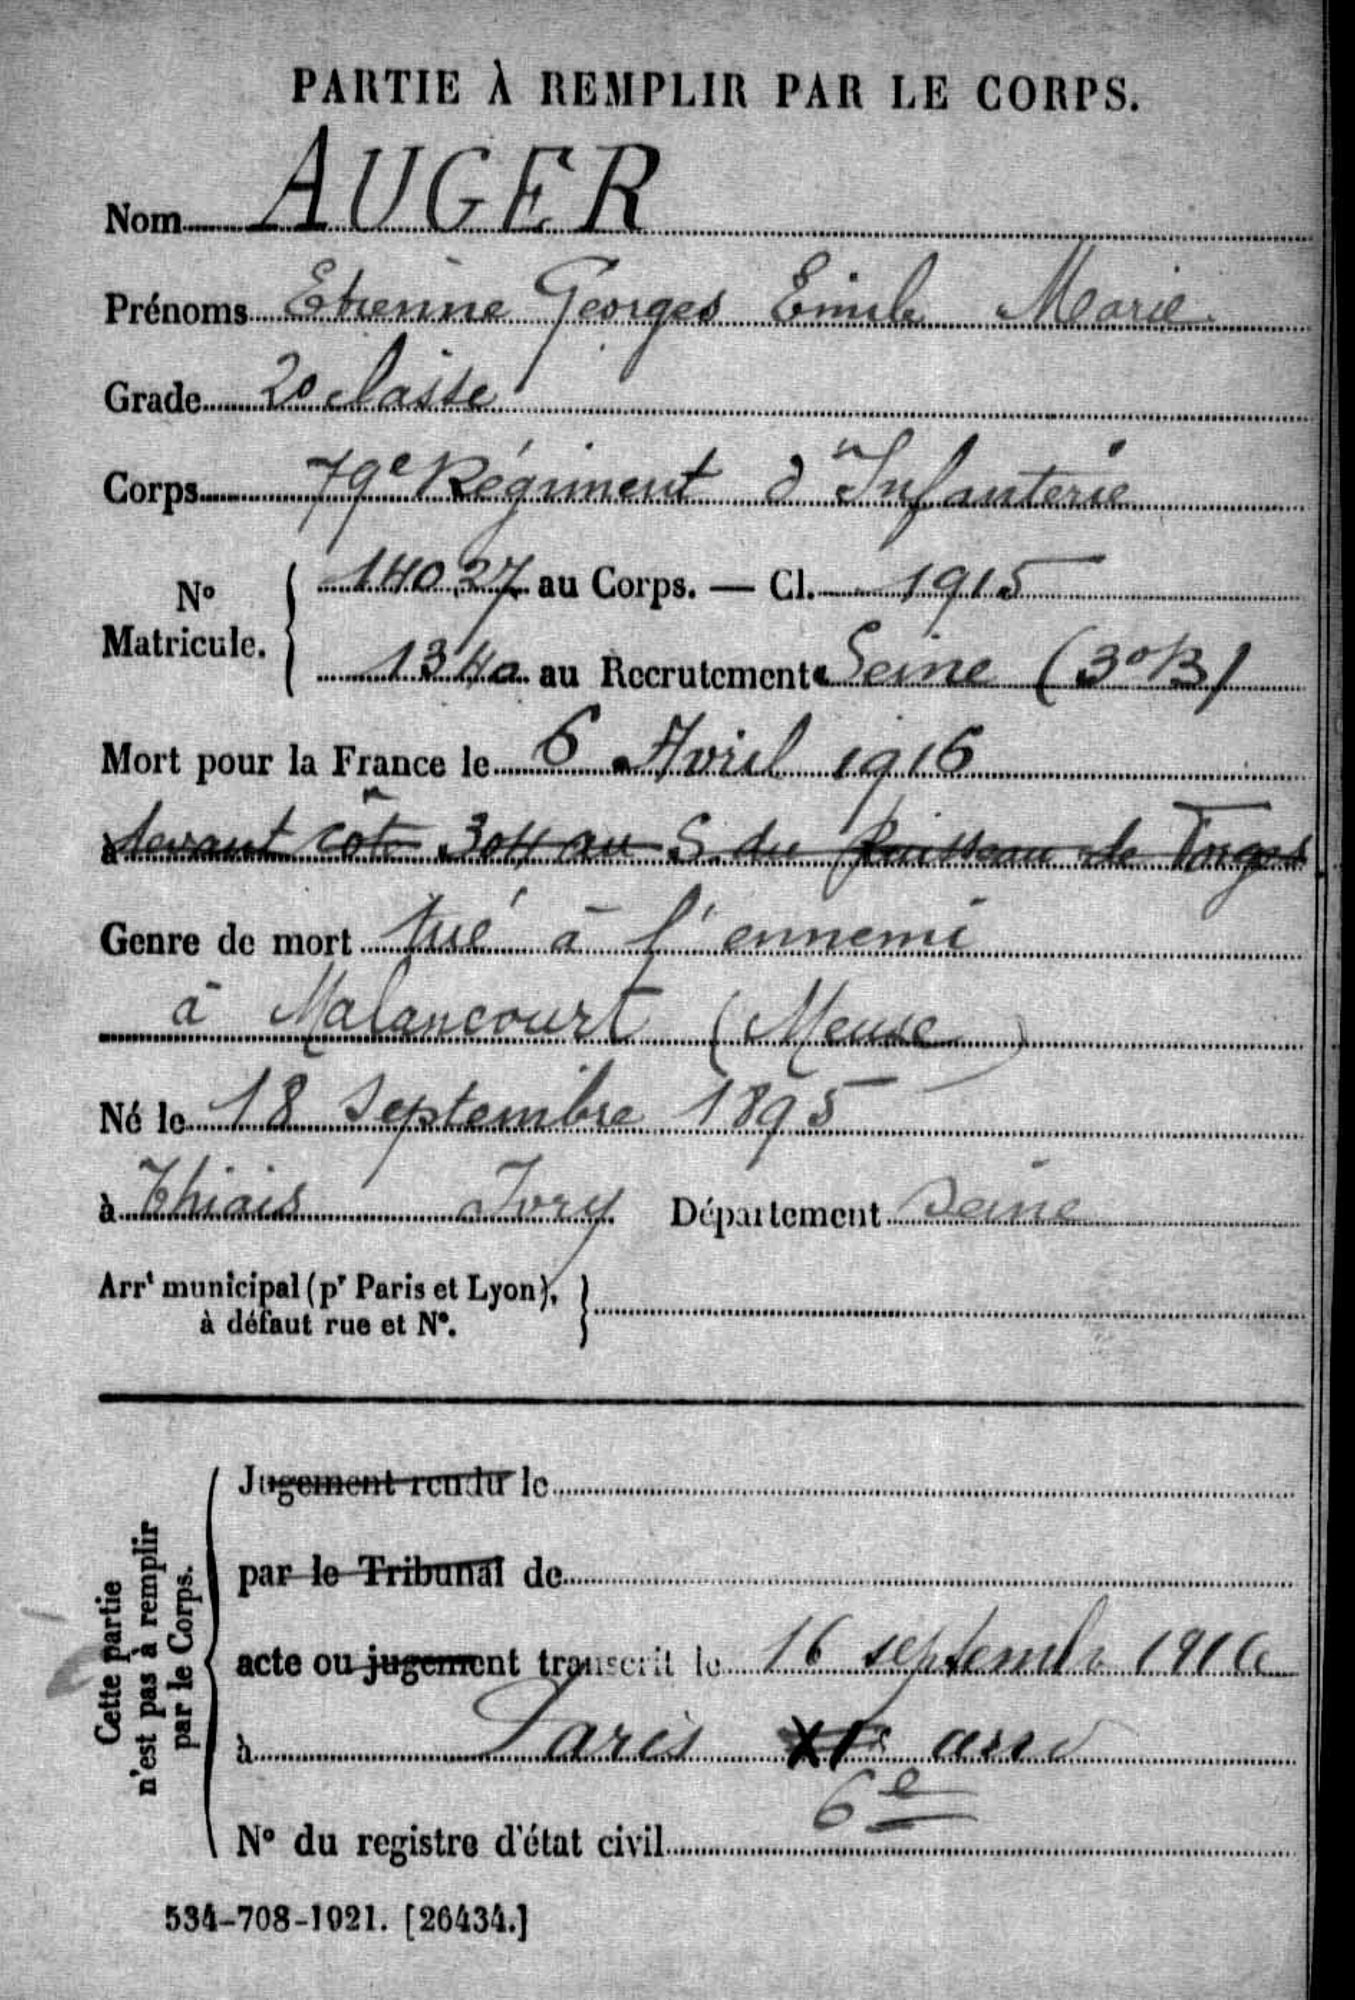 PARTIE À REMPLIR PAR LE CORPS.
Nom AUGER
Prénoms Etienne Georges Emile Marie
Grade 2e classe
Corps 79e Régiment d'Infanterie
No Matricule. 14027 au Corps. — Cl. 1915
1340 au Recrutement Seine (3oB)
Mort pour la France le 6 Avril 1916
à devant côte 304 au S. du Ruisseau de Forges
Genre de mort tué à l'ennemi
à Malancourt (Meuse)
Né le 18 Septembre 1895
à Thiais Ivry Département Seine
Arrt municipal (pr Paris et Lyon), à défaut rue et No.
Cette partie n'est pas à remplir par le Corps.
Jugement rendu le
par le Tribunal de
acte ou jugement transcrit le 16 septembre 1916
à Paris arrd
6e
No du registre d'état civil
534-708-1921. [26434.]